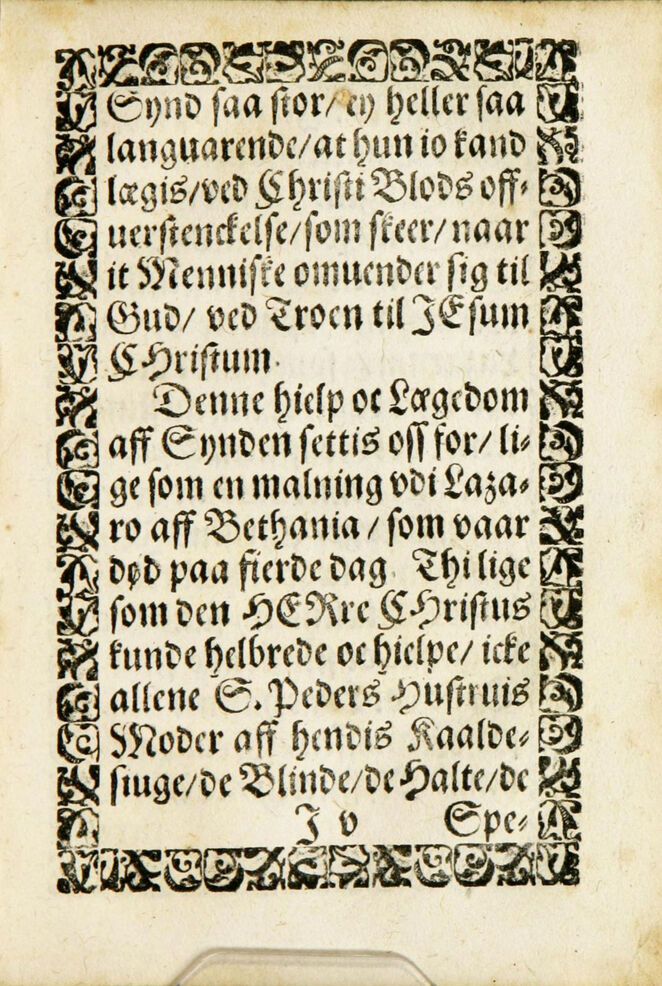 Synd saa stor/ ey heller saa
languarende/at hun io kand
lægis/ved Christi Blods off⸗
uerstenckelse/som skeer/ naar
it Menniske omuender sig til
Gud/ ved Troen til JEsum
CHristum.
Denne hielp oc Lægedom
aff Synden settis oss for/ li⸗
ge som en malning vdi Laza⸗
ro aff Bethania / som vaar
død paa fierde dag. Thi lige
som den HERre CHristus
kunde helbrede oc hielpe/ icke
allene S. Peders Hustruis
Moder aff hendis Kaalde⸗
siuge/de Blinde/de Halte/de
J v Spe⸗